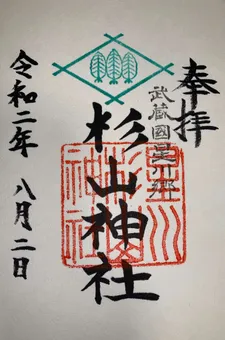 奉拝
武蔵國星川郷
杉山神社
令和二年 八月二日